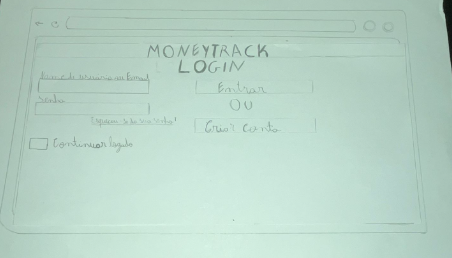 MONEYTRACK
LOGIN
Nome de usuário ou Email
Senha
Esqueceu a sua senha?
Continuar logado
Entrar
OU
Criar conta